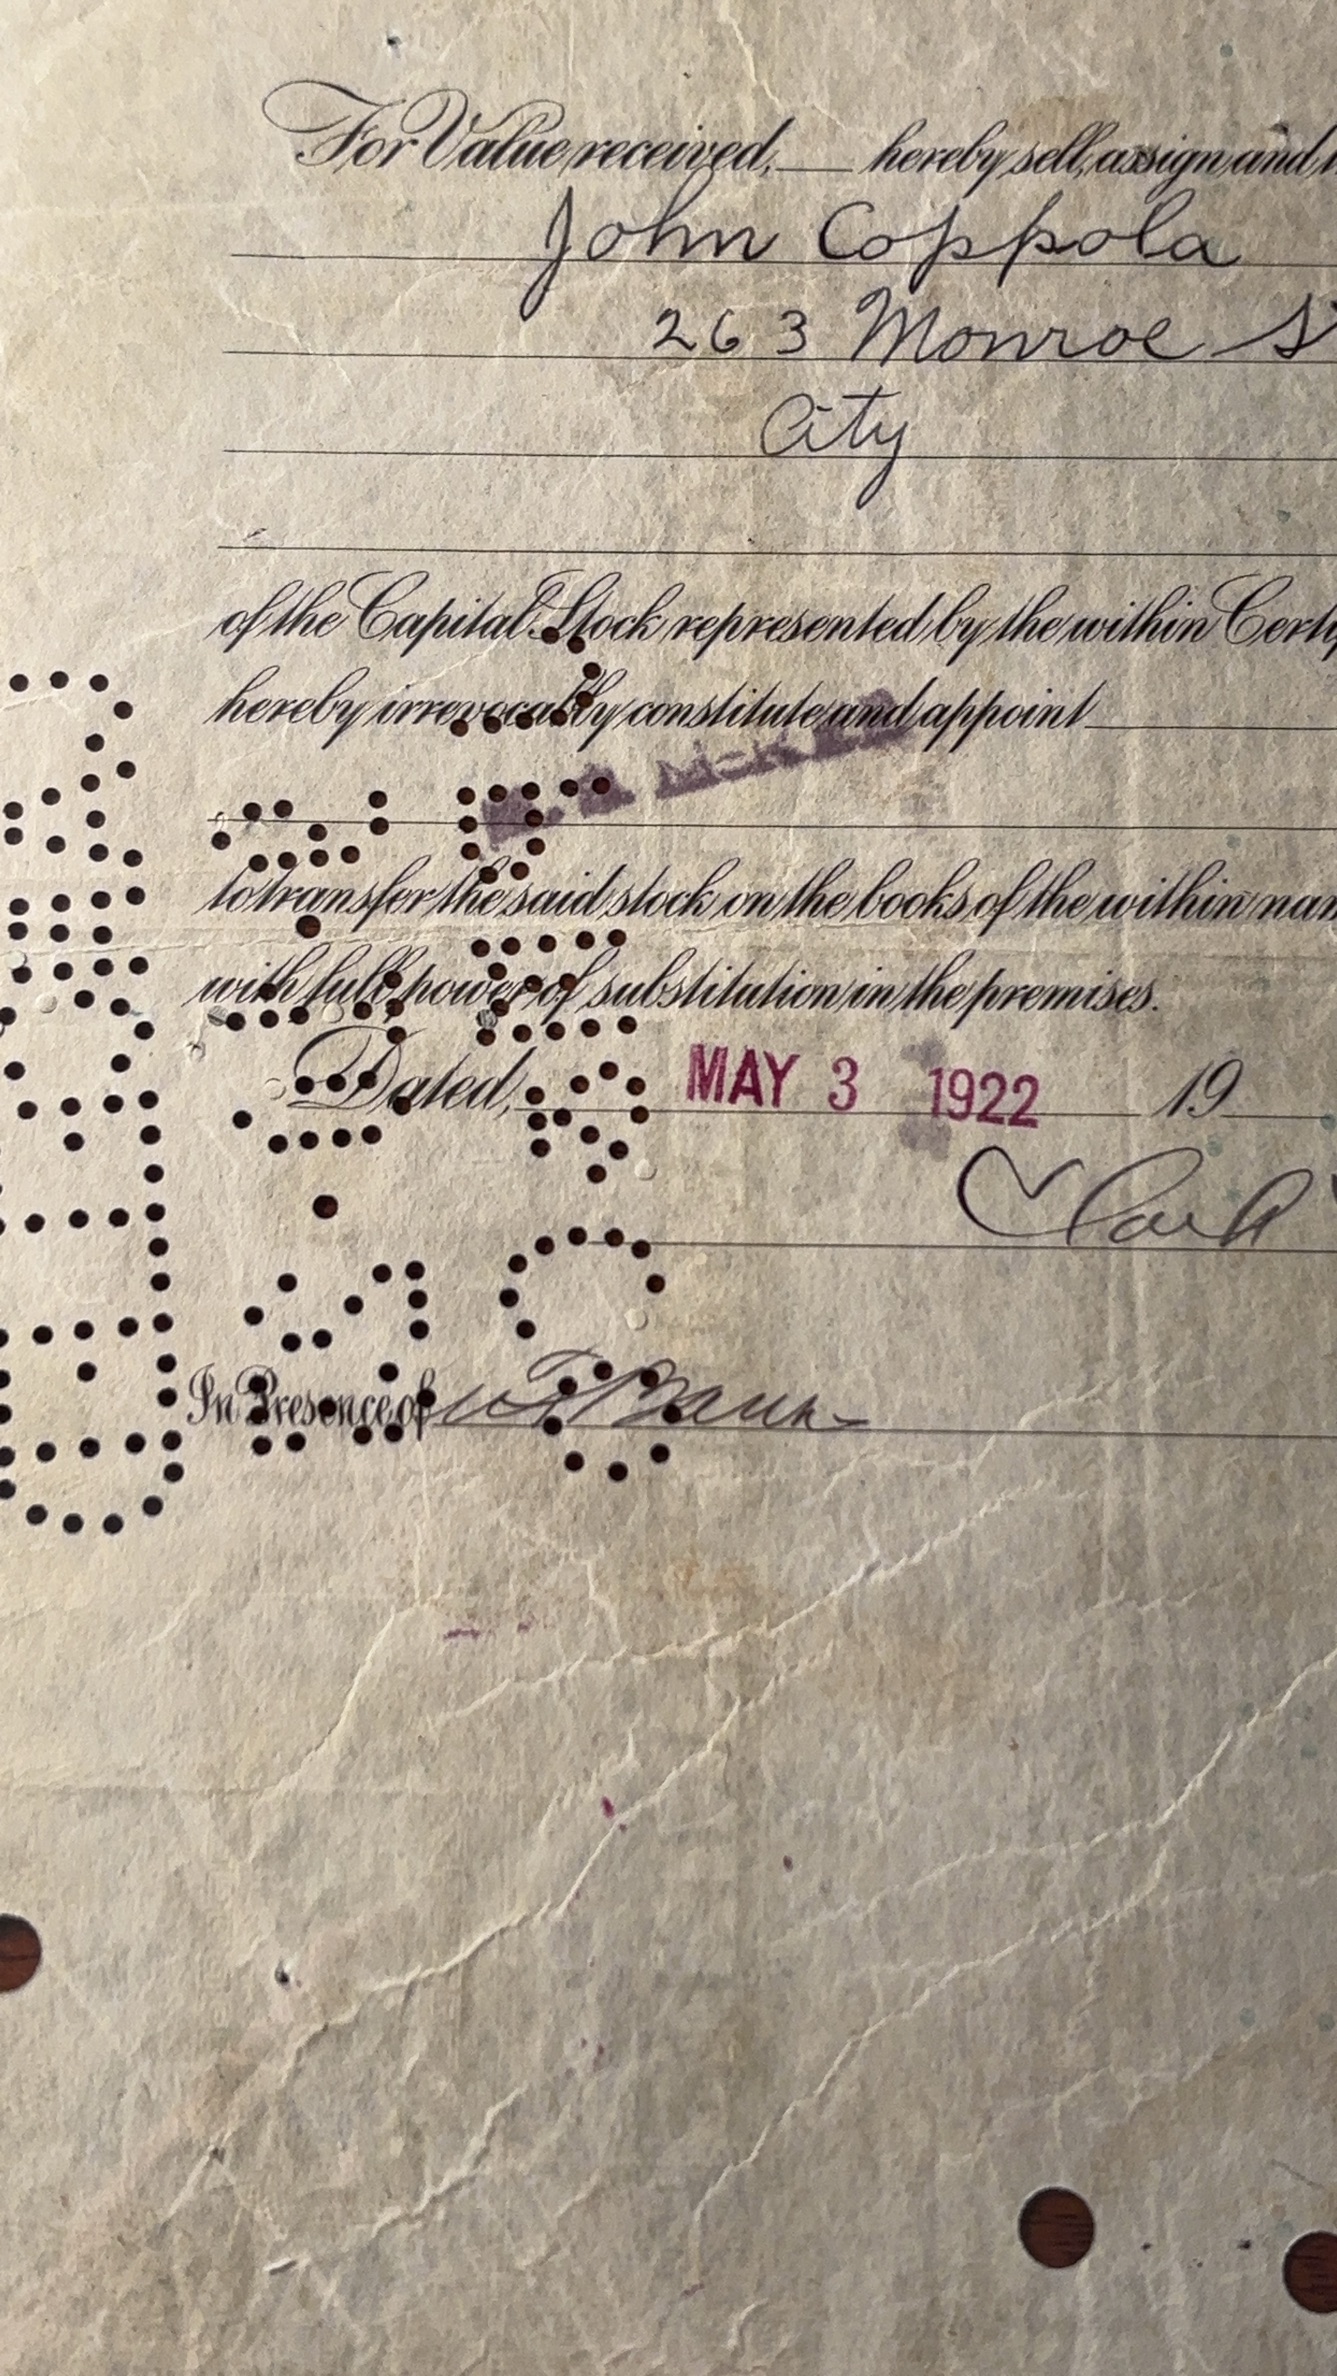 For Value received, ___ hereby sell, assign and
John Coppola
263 Monroe St
City
of the Capital Stock represented by the within Certi
hereby irrevocably constitute and appoint
McKEE
to transfer the said stock on the books of the within nam
with full power of substitution in the premises.
Dated, MAY 3 1922 19
Clark
In Presence of